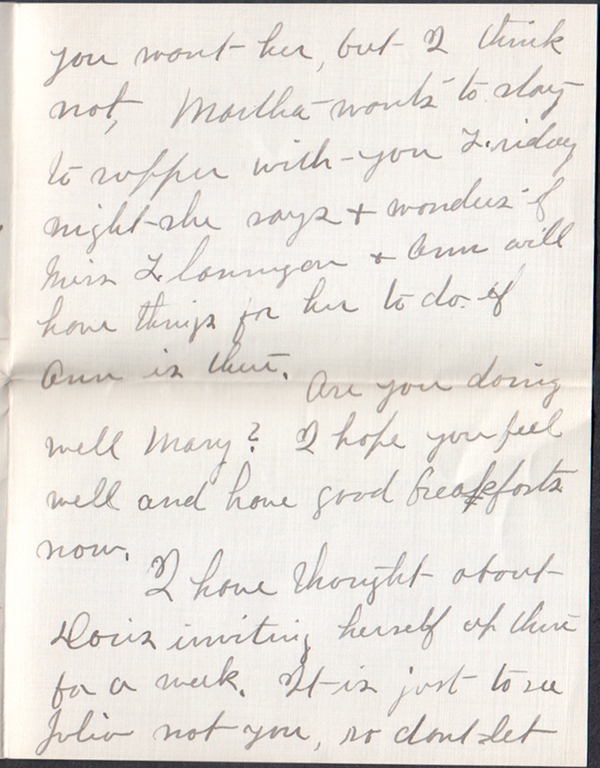 you want her, but I think
not, Martha wants to stay
to supper with you Friday
night she says + wonders if
Miss Flannigan + Ann will
have things for her to do. if
Ann is there. Are you doing
well Mary? I hope you feel
well and have good breakfasts
now.
I have thought about
Doris inviting herself up there
for a week. It is just to see
Julia not you, so dont let